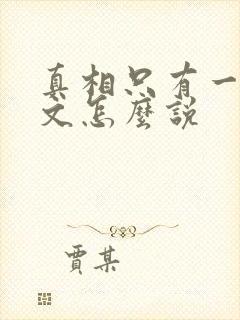 真相只有一
文怎麼説
賈某